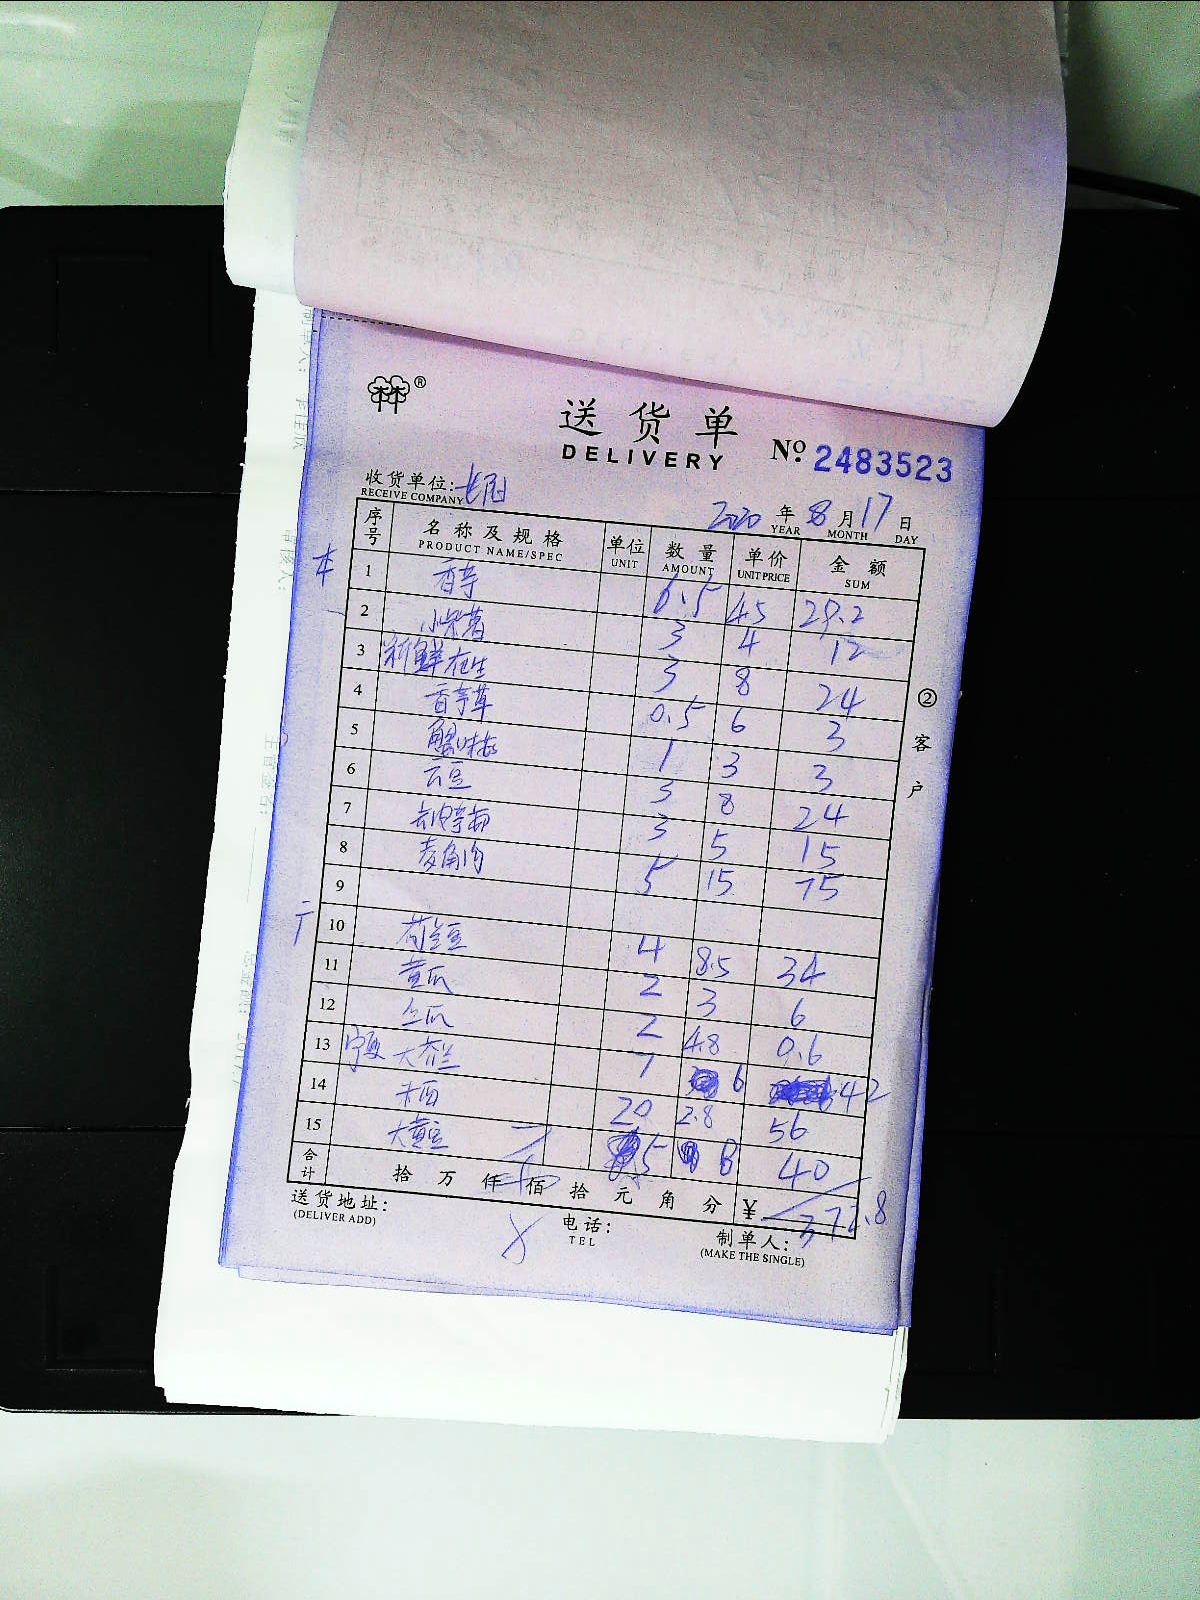 送货单
DELIVERY
№ 2483523
收货单位:
RECEIVE COMPANY
2020 年 8 月 17 日
YEAR MONTH DAY
序号 名称及规格 单位 数量 单价 金额
PRODUCT NAME/SPEC UNIT AMOUNT UNIT PRICE SUM
本
1 香芋 6.5 45 29.2
2 小米薯 3 4 12
3 新鲜花生 3 8 24
4 香茅草 0.5 6 3
5 蟹味菇 1 3 3
6 云豆 3 8 24
7 3 5 15
8 菱角肉 5 15 75
9
10 荷兰豆 4 8.5 34
11 黄瓜 2 3 6
12 丝瓜 2 4.8 9.6
13 宁夏大芥兰 7 6 42
14 20 2.8 56
15 大黄豆 5 8 40
合计 拾 万 仟 佰 拾 元 角 分 ¥ 372.8
② 客户
送货地址:
(DELIVER ADD)
电话:
TEL
制单人:
(MAKE THE SINGLE)